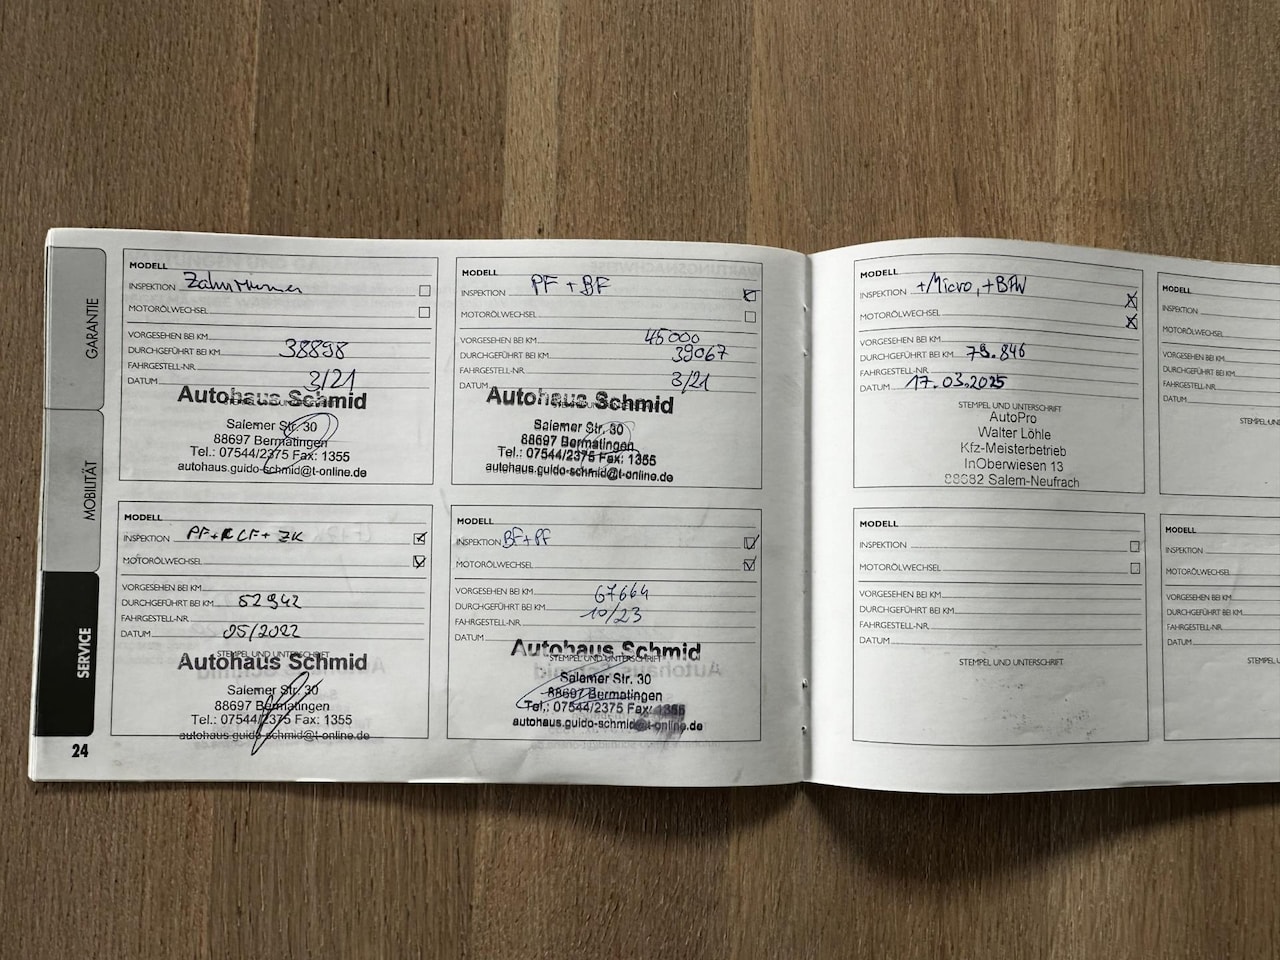 GARANTIE
MOBILITÄT
SERVICE
24
MODELL
INSPEKTION Zahnriemen
MOTORÖLWECHSEL
VORGESEHEN BEI KM
DURCHGEFÜHRT BEI KM 38898
FAHRGESTELL-NR.
DATUM 3/21
Autohaus Schmid
Salemer Str. 30
88697 Bermatingen
Tel.: 07544/2375 Fax: 1355
autohaus.guido-schmid@t-online.de
MODELL
INSPEKTION PF + BF
MOTORÖLWECHSEL
VORGESEHEN BEI KM 45000
DURCHGEFÜHRT BEI KM 39067
FAHRGESTELL-NR.
DATUM 3/21
Autohaus Schmid
Salemer Str. 30
88697 Bermatingen
Tel.: 07544/2375 Fax: 1355
autohaus.guido-schmid@t-online.de
MODELL
INSPEKTION PF+ CF+ ZK
MOTORÖLWECHSEL
VORGESEHEN BEI KM
DURCHGEFÜHRT BEI KM 52942
FAHRGESTELL-NR.
DATUM 05/2022
STEMPEL UND UNTERSCHRIFT
Autohaus Schmid
Salemer Str. 30
88697 Bermatingen
Tel.: 07544/2375 Fax: 1355
autohaus.guido-schmid@t-online.de
MODELL
INSPEKTION BF+PF
MOTORÖLWECHSEL
VORGESEHEN BEI KM 67664
DURCHGEFÜHRT BEI KM 10/23
FAHRGESTELL-NR.
DATUM
Autohaus Schmid
STEMPEL UND UNTERSCHRIFT
Salemer Str. 30
88697 Bermatingen
Tel.: 07544/2375 Fax: 1355
autohaus.guido-schmid@t-online.de
MODELL
INSPEKTION +Micro, +BFW
MOTORÖLWECHSEL
VORGESEHEN BEI KM
DURCHGEFÜHRT BEI KM 79.846
FAHRGESTELL-NR.
DATUM 17.03.2025
STEMPEL UND UNTERSCHRIFT
AutoPro
Walter Löhle
Kfz-Meisterbetrieb
InOberwiesen 13
88682 Salem-Neufrach
MODELL
INSPEKTION
MOTORÖLWECHSEL
VORGESEHEN BEI KM
DURCHGEFÜHRT BEI KM
FAHRGESTELL-NR.
DATUM
STEMPEL UN
MODELL
INSPEKTION
MOTORÖLWECHSEL
VORGESEHEN BEI KM
DURCHGEFÜHRT BEI KM
FAHRGESTELL-NR.
DATUM
STEMPEL UND UNTERSCHRIFT
MODELL
INSPEKTION
MOTORÖLWECHSEL
VORGESEHEN BEI KM
DURCHGEFÜHRT BEI KM
FAHRGESTELL-NR.
DATUM
STEMPEL U